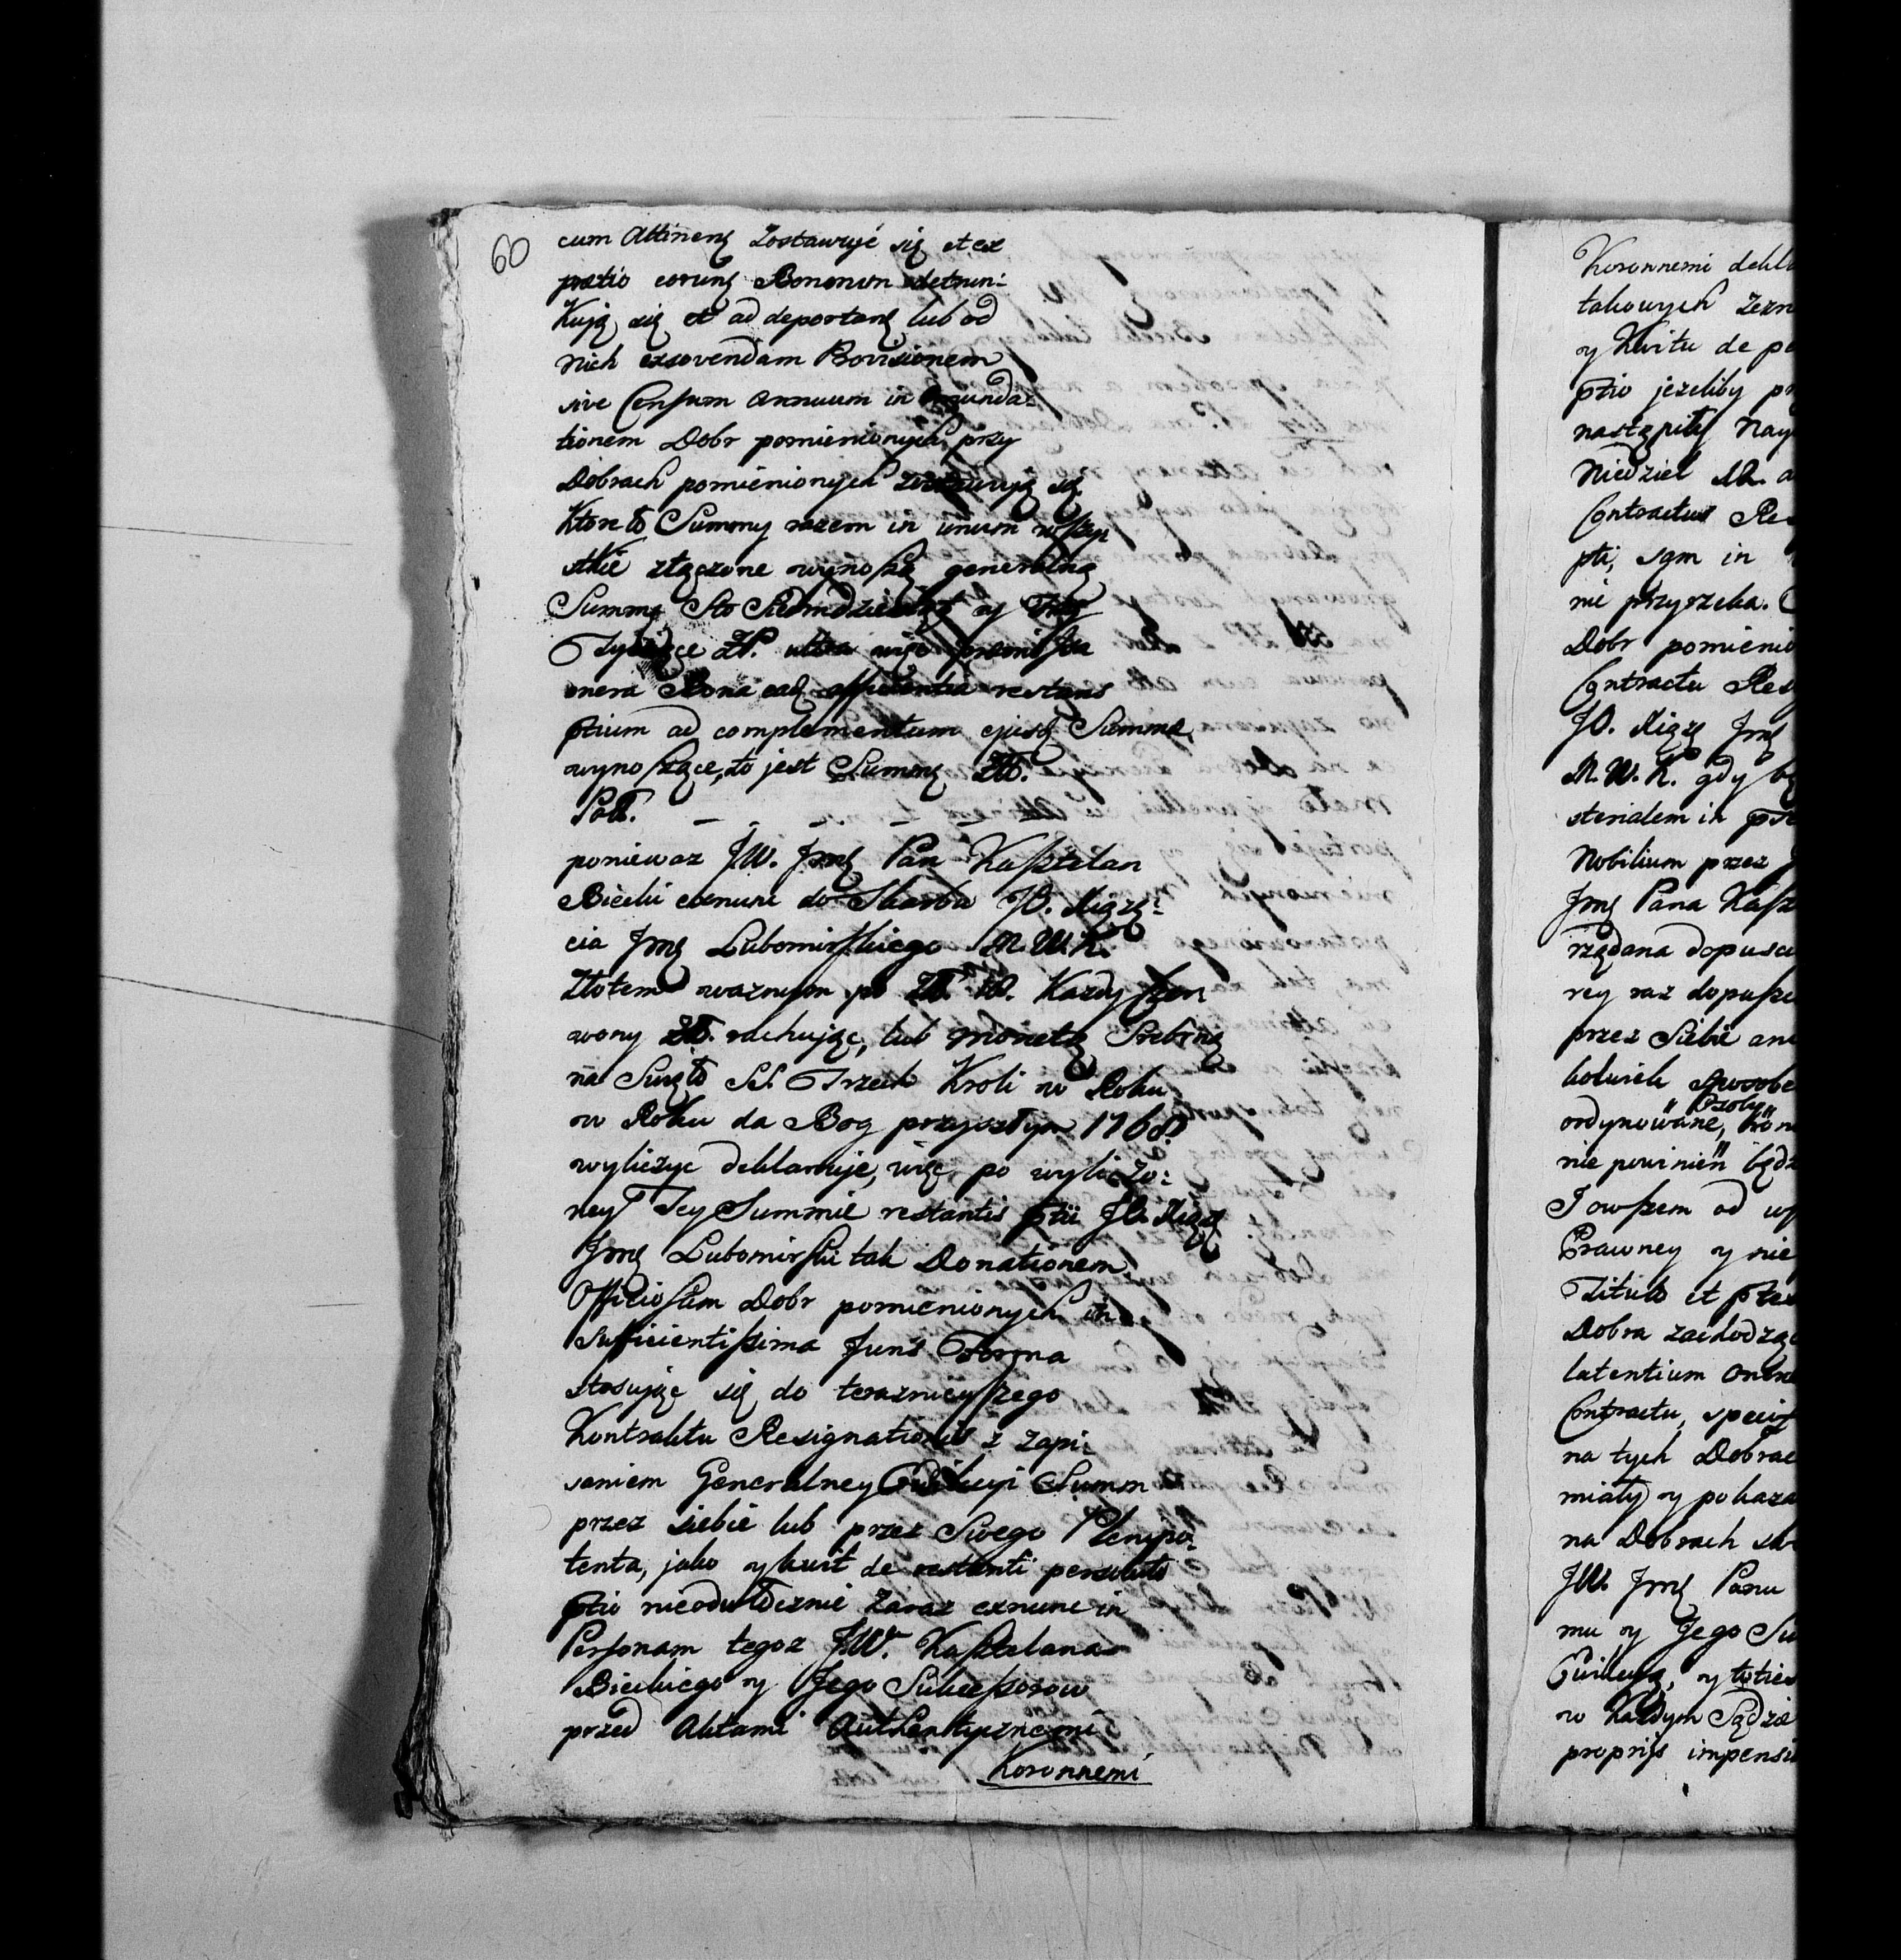 60
cum Attinen: Zostawuje się et ex
prætio eorung Bononon detrun:
Kują się et ad deportang lub od
nich exsovendam Provisionem
sive Censum annuum in
tionem Dobr pomienionych przy
Dobrach pomienionych zostawują się
Które to Summy razem in unum wszy
stkie złączone wynoszą generalną
Summę Sto Siedmdziesiąt y Trzy
Tysiące Zł. ultra więc præmissa
onera Bona ead. afficientia restans
ptium ad complementum ejusq Summæ,
wynoszące, to jest Summę Zł.
Pol. – – – – – –
poniewaz JW. Jmę Pan Kasztelan
Biecki exnunc do Skarbu JO. Xiązę:
cia Jmę Lubomirskiego M.W.K.
Złotem waznym po Zł. 18. Kazdy Czer
wony Zł. rachując, lub monetą Srebrną
na Swięto SS. Trzech Kroli w Roku
w Roku da Bog przyszłym 1768.
wyliczyc deklaruje, więc po wyliczo:
ney Tey Summie restantis ptii JO. Xiązę
Jmę Lubomirski tak Donationem
Officiosam Dobr pomienionych in
sufficientissima Juris Forma
stosując się do teraznieyszego
Kontraktu Resignationis z zapi:
saniem Generalney Ewikcyi Summ
przez siebie lub przez Swego Plenipo:
tenta, jako y kwit de restanti persoluto
ptio nieodwłocznie Zaraz exnunc in
Personam tegoz JW. Kasztelana
Bieckiego y Jego Sukcessorow
przed Aktami Authentycznemi
Koronnemi
Koronnemi dekla
takowych zezn
y Kwitu de pe
ptio jezeliby pr
nastąpiły Nay
Niedziel 12. a
Contractus Res
pti, sam in
nie przyrzeka.
Dobr pomienio
Contractu Res
JO. Xiązę Jmę
M.W.K. gdy
sterialem in
Nobilium przez
Jmę Pana Kasz
rządana dopusc
rey raz dopusz
przez Siebie ani
kolwiek sposobe
Osoby
ordynowane,
nie powinien będz
I owszem od
Prawney y nie
Titulo et
Dobra zachodzą
latentium oner
Contractu, specif
na tych Dobrac
miały y pokaza
na Dobrach
JW. Jmę Panu
mu y Jego Su
Ewikcyą, y toties
w Kazdym Sądzie
proprijs impensis